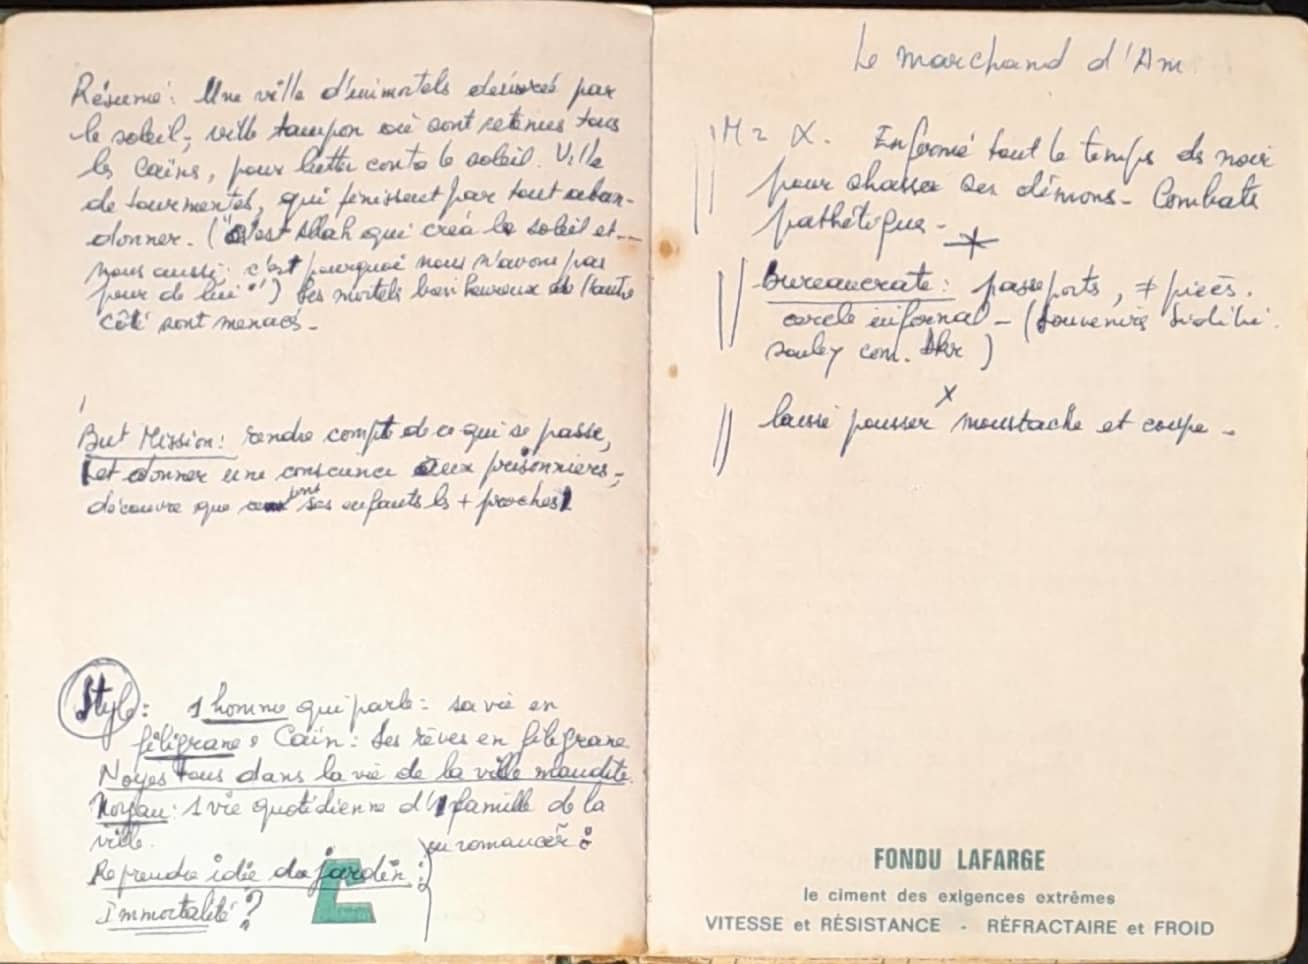 Résumé: Une ville d'immortels désirés par
le soleil; ville tampon où sont retenus tous
les Caïns, pour lutter contre le soleil. Ville
de tourmentés, qui finissent par tout aban-
donner. ("C'est Allah qui créa le soleil et...
nous aussi; c'est pourquoi nous n'avons pas
peur de lui".) Les mortels bien heureux de l'autre
côté sont menacés -
But Mission: rendre compte de ce qui se passe,
et donner une conscience aux prisonniers -
découvre que sont ses enfants les + proches
Style: 1 homme qui parle: sa vie en
filigrane, Caïn: ses rêves en filigrane
Noyés tous dans la vie de la ville maudite.
Noyau: 1 vie quotidienne d'1 famille de la
ville.
ou romancer:
Reprendre idée du jardin:
Immortalité?
Le marchand d'Am
M = X. Enfermé tout le temps ds noir
pour chasser ses démons - Combats
pathétiques -
Bureaucrate: passeports, ≠ pièces.
cercle infernal - (souvenirs
com. Dkr)
laissé pousser moustache et coupe -
FONDU LAFARGE
le ciment des exigences extrêmes
VITESSE et RÉSISTANCE - RÉFRACTAIRE et FROID